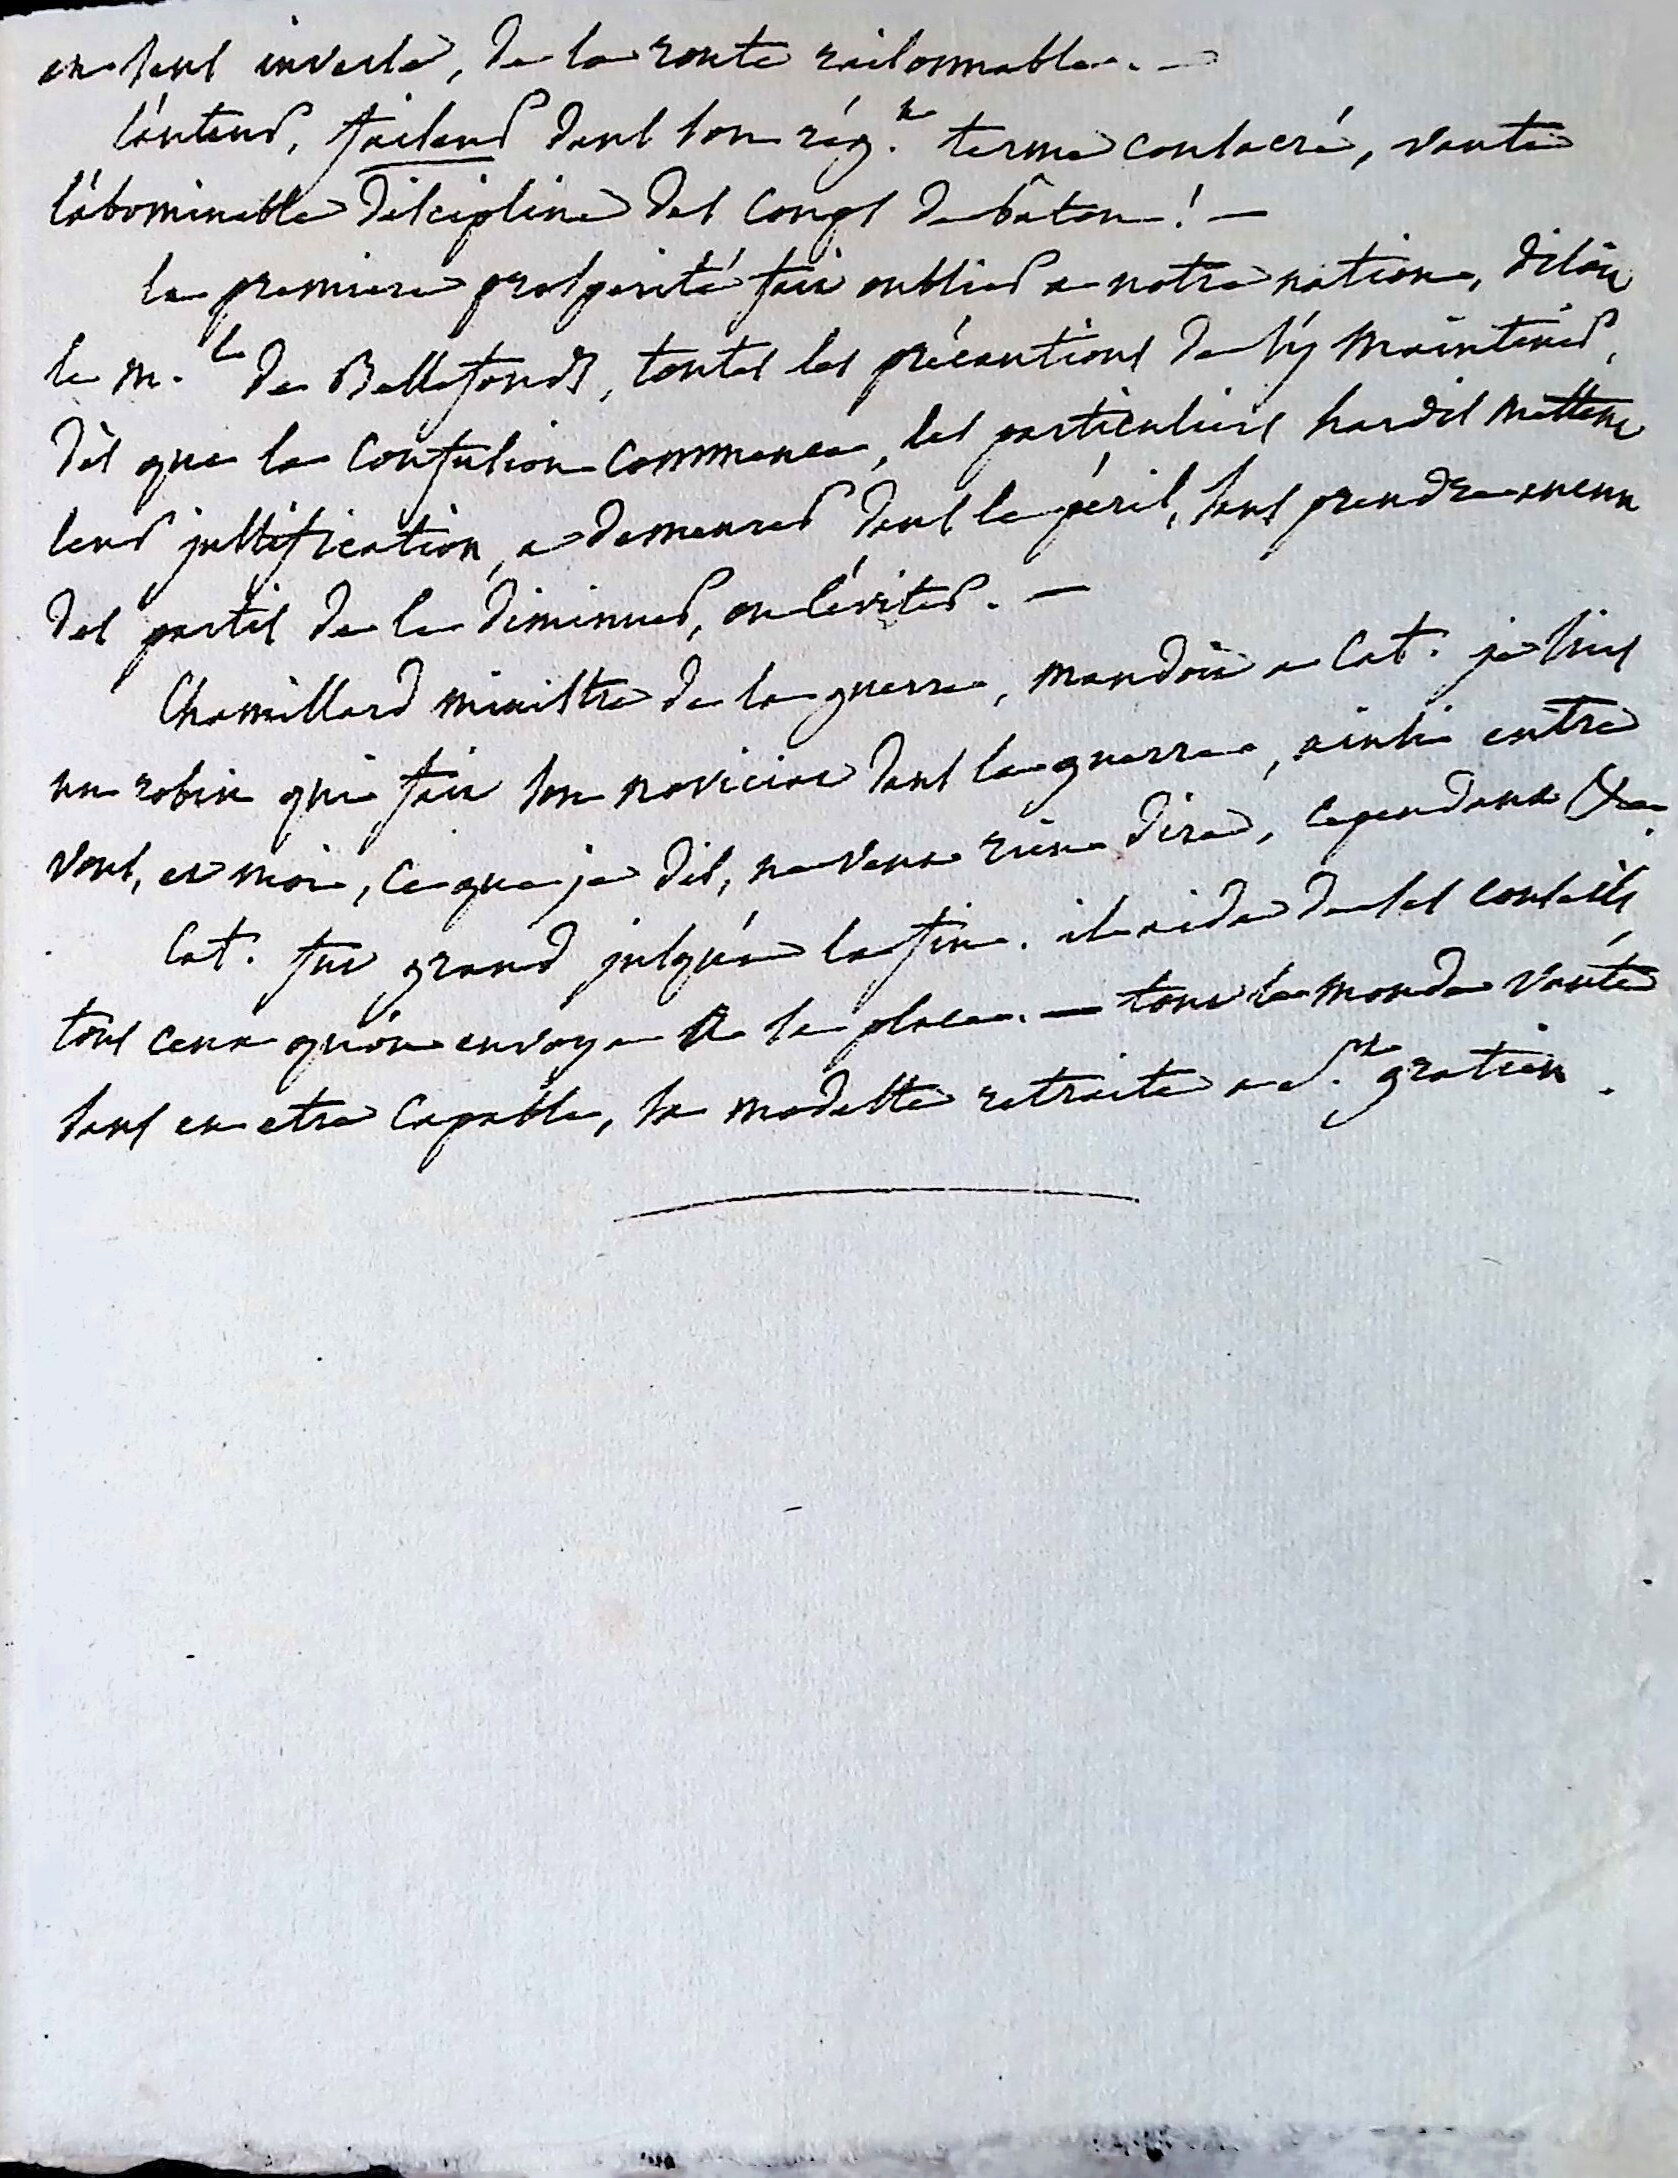 en sens inverse, de la route raisonnable. —
l'auteur, faiseur dans son rég.t terme consacré, vante
l'abominable discipline des coups de bâton! —
la premiere prosperité fait oublier a notre nation, disoit
le m.al de Bellefonds, toutes les précautions de s'y maintenir,
dès que la confusion commence, les particuliers hardis mettent
leur justification, a demeurer dans le péril, sans prendre aucun
des partis de le diminuer, ou l'éviter. —
Chamillard ministre de la guerre, mandoit a Cat. je suis
un robin qui fait son noviciat dans la guerre, ainsi entre
vous, et moi, ce que je dis, ne veut rien dire, cependant &a.
Cat. fut grand jusqu'a la fin. il aida de ses conseils,
tous ceux qu'on envoya a sa place. — tout le monde vante
sans en etre capable, sa modeste retraite a S.t gratien.